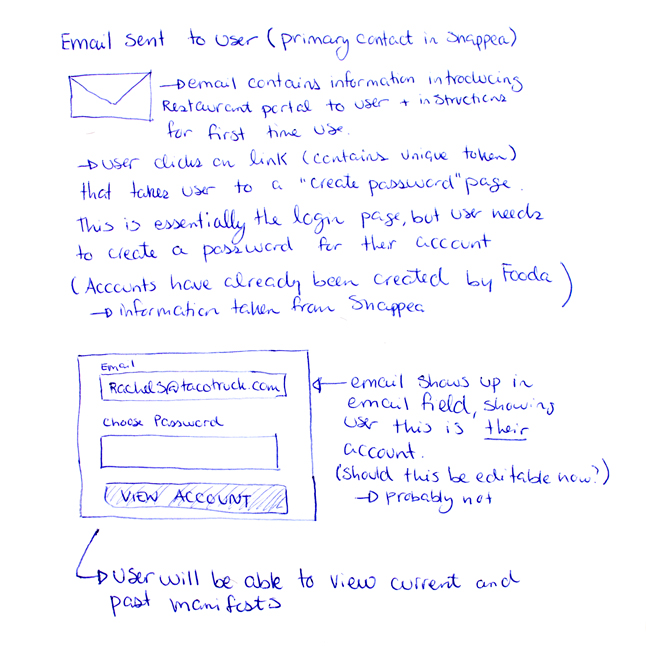 Email sent to user (primary contact in Snappea)
→ email contains information introducing
Restaurant portal to user + instructions
for first time use.
→ user clicks on link (contains unique token)
that takes user to a "create password" page.
This is essentially the login page, but user needs
to create a password for their account
(Accounts have already been created by Fooda)
→ information taken from Snappea
Email
RachelS@tacotruck.com
Choose Password
VIEW ACCOUNT
← email shows up in
email field, showing
user this is their
account.
(should this be editable now?)
→ probably not
→ user will be able to view current and
past manifests